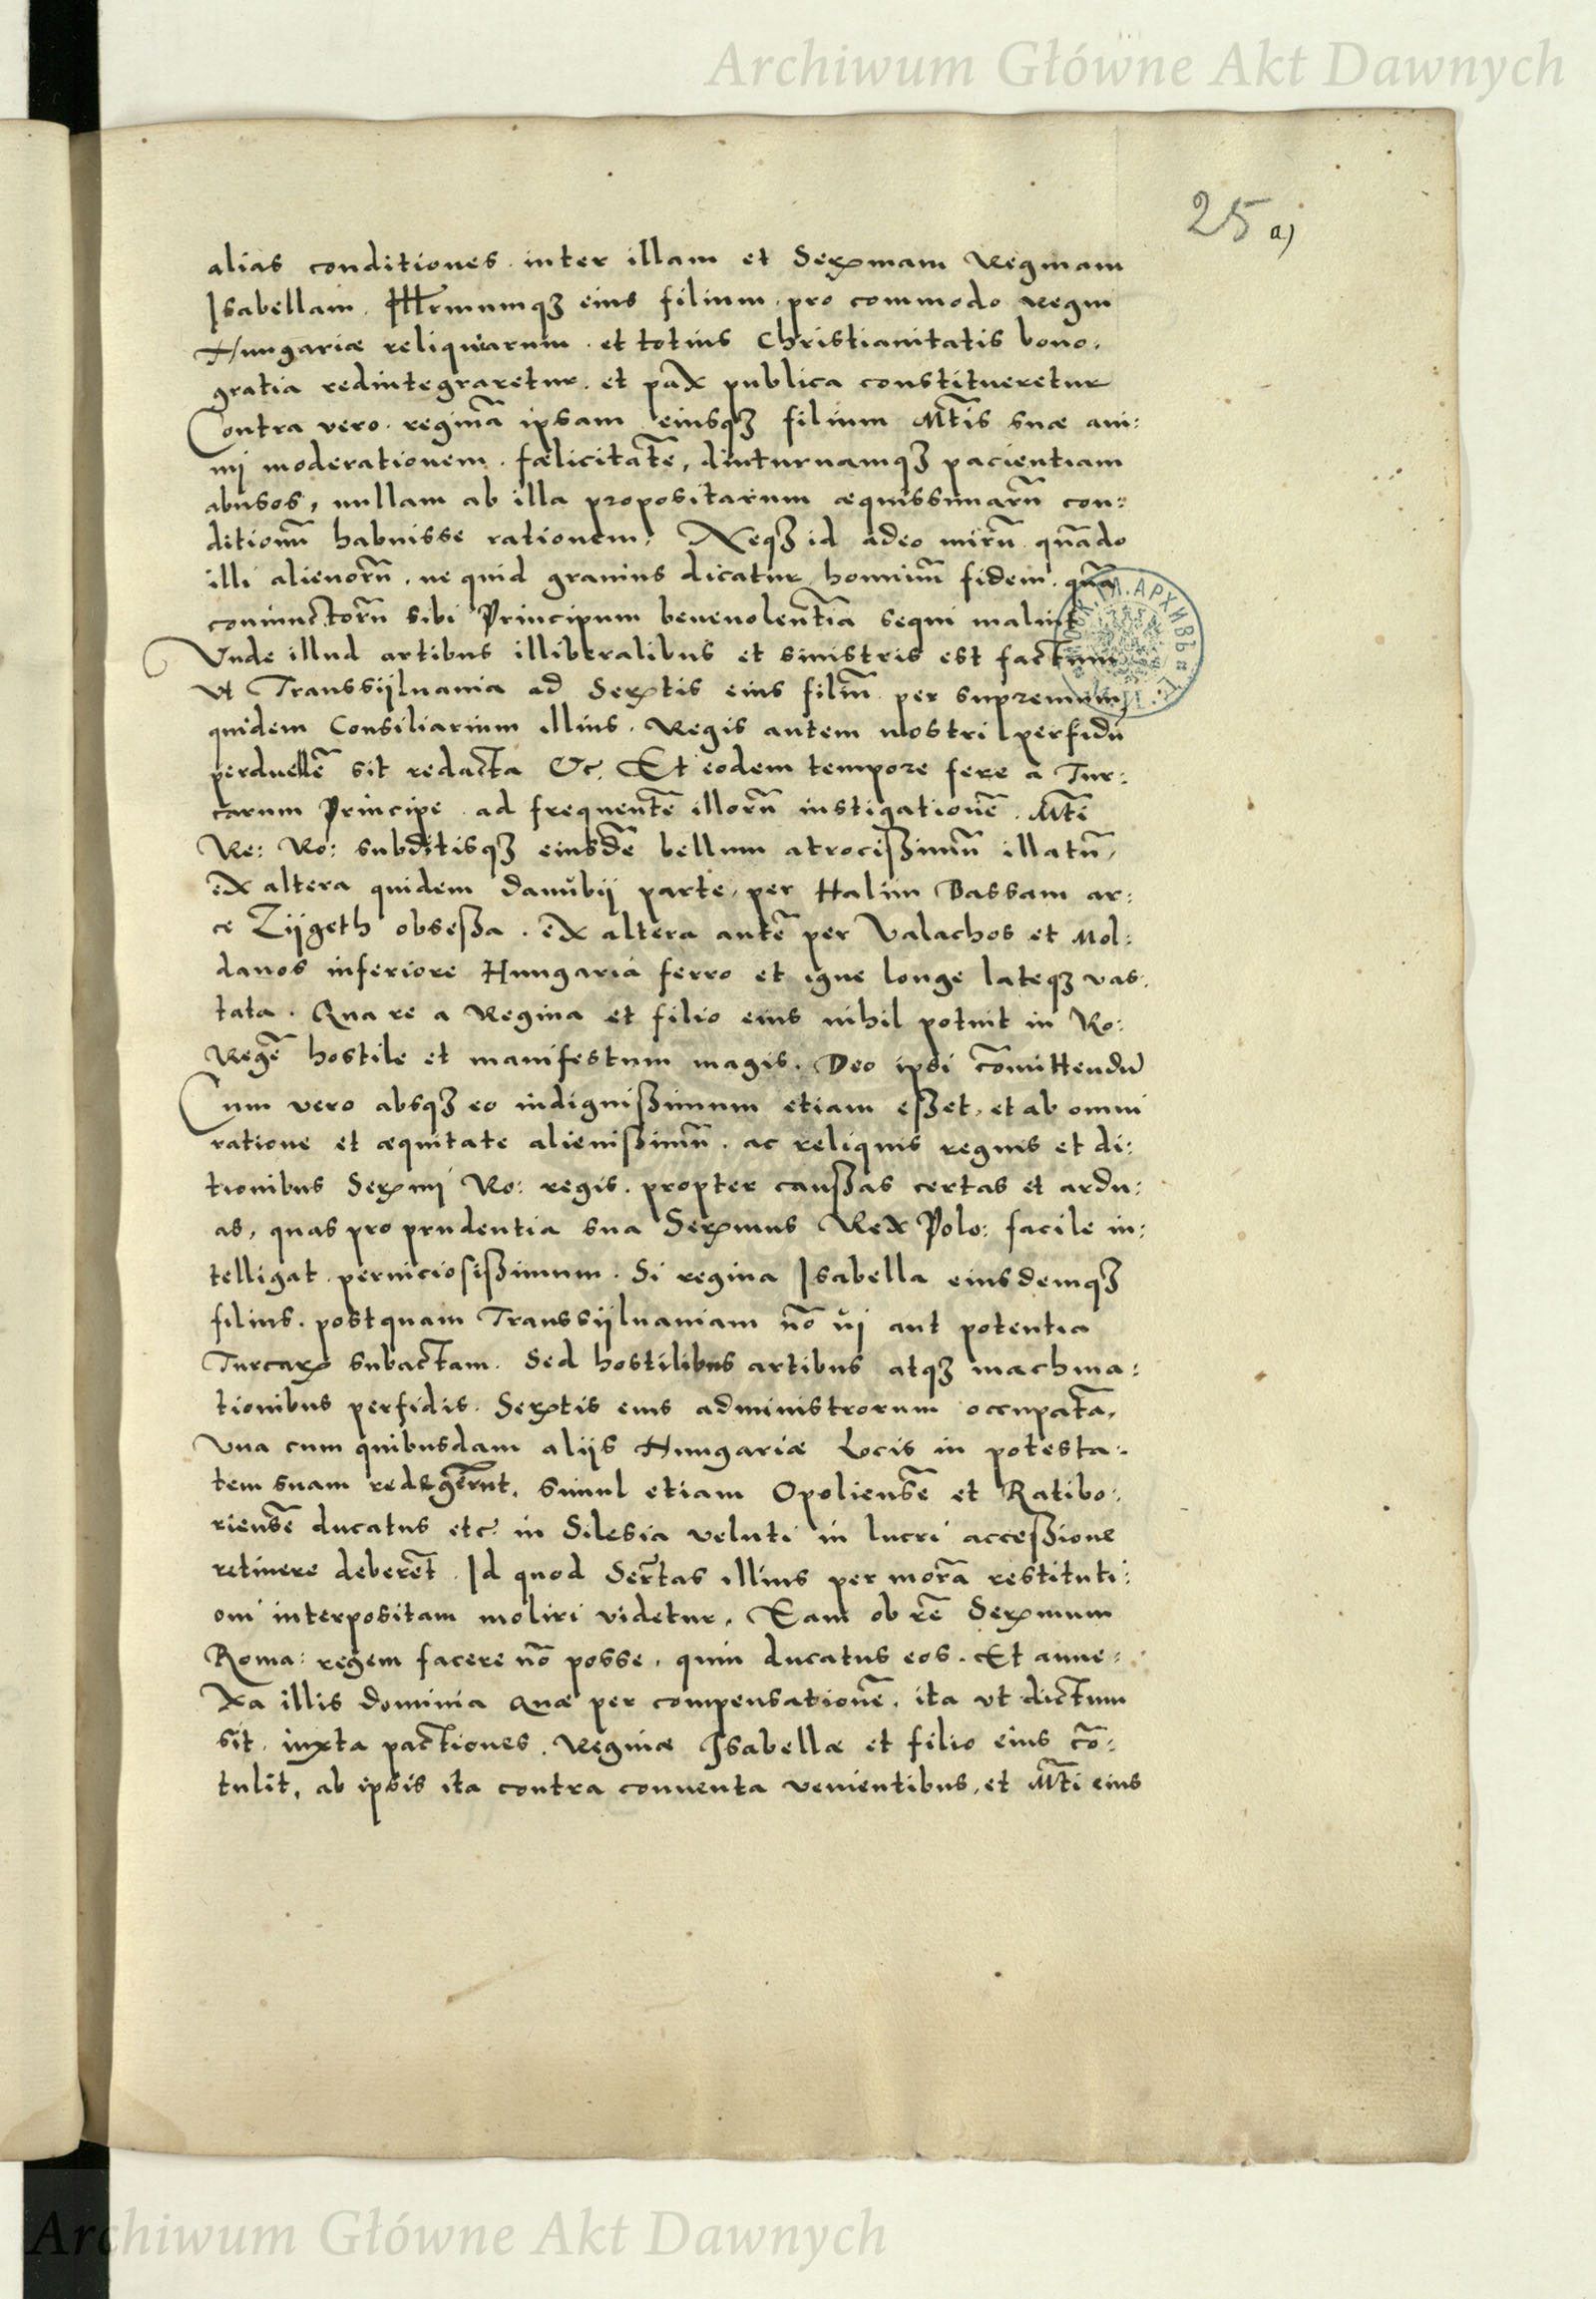 Archiwum Główne Akt Dawnych
25 a)
alias conditiones . inter illam et Serenmam Reginam
Isabellam . Illrmumqꝫ eius filium . pro commodo Regni
Hungariæ reliquiarum . et totius Christianitatis bono .
gratia redintegraretur . et pax publica constitueretur
Contra vero . reginā ipsam eiusqꝫ filium Mtis̄ suæ ani:
mi moderationem . fælicitatē, diuturnamqꝫ pacientiam
abusos, nullam ab illa propositarum æquissimarū con:
ditionū habuisse rationem, Neqꝫ id adeo mirū quādo
illi alienorū . ne quid grauius dicatur hominū fidem . quā
coniunctorū sibi Principum beneuolentiā sequi malint
Vnde illud artibus illiberalibus et sinistris est factum
vt Transsijluania ad Serꝭtis eius filiū per supremum,
quidem Consiliarium illius . Regis autem nostri perfidū
perduellē sit redacta &c. Et eodem tempore fere a Tur:
carum Principe . ad frequentē illorū instigationē . Mti
Re: Ro: subditisqꝫ eiusdē bellum atrocißimū illatū,
ex altera quidem danŭbij parte, per Halim Bassam ar:
ce Zijgeth obseßa . ex altera autē per Valachos et Mol:
dauos inferiore Hungaria ferro et igne longe lateqꝫ vas:
tata . Qua re a Regina et filio eius nihil potuit in Ro:
Regē hostile et manifestum magis . Deo ipsi cōmittendū
Cum vero absqꝫ eo indignißimum etiam eßet, et ab omni
ratione et æquitate alienißimū . ac reliquis regnis et di:
tionibus Serꝭmi Ro: regis . propter caußas certas et ardu:
as, quas pro prudentia sua Serꝭmus Rex Polo: facile in:
telligat . perniciosißimum . Si regina Isabella eiusdemqꝫ
filius . postquam Transsijluaniam nō vi aut potentia
Turcarꝭ subactam . Sed hostilibus artibus atqꝫ machina:
tionibus perfidis . Serꝭtis eius administrorum occupatā,
vna cum quibusdam alijs Hungariæ Locis in potesta:
tem suam redegerūt, simul etiam Opoliensē et Ratibo:
riensē ducatus etc. in Silesia veluti in lucri acceßione
retinere deberēt . Id quod Sertas illius per morā restituti:
oni interpositam moliri videtur, Eam ob rē Serꝭmum
Roma: regem facere nō posse, quin ducatus eos . Et anne:
xa illis dominia quæ per compensationē, ita vt dictum
sit . iuxta pactiones . Reginæ Isabellæ et filio eius cō:
tulit, ab ipsis ita contra conuenta venientibus, et Mti eius
Archiwum Główne Akt Dawnych